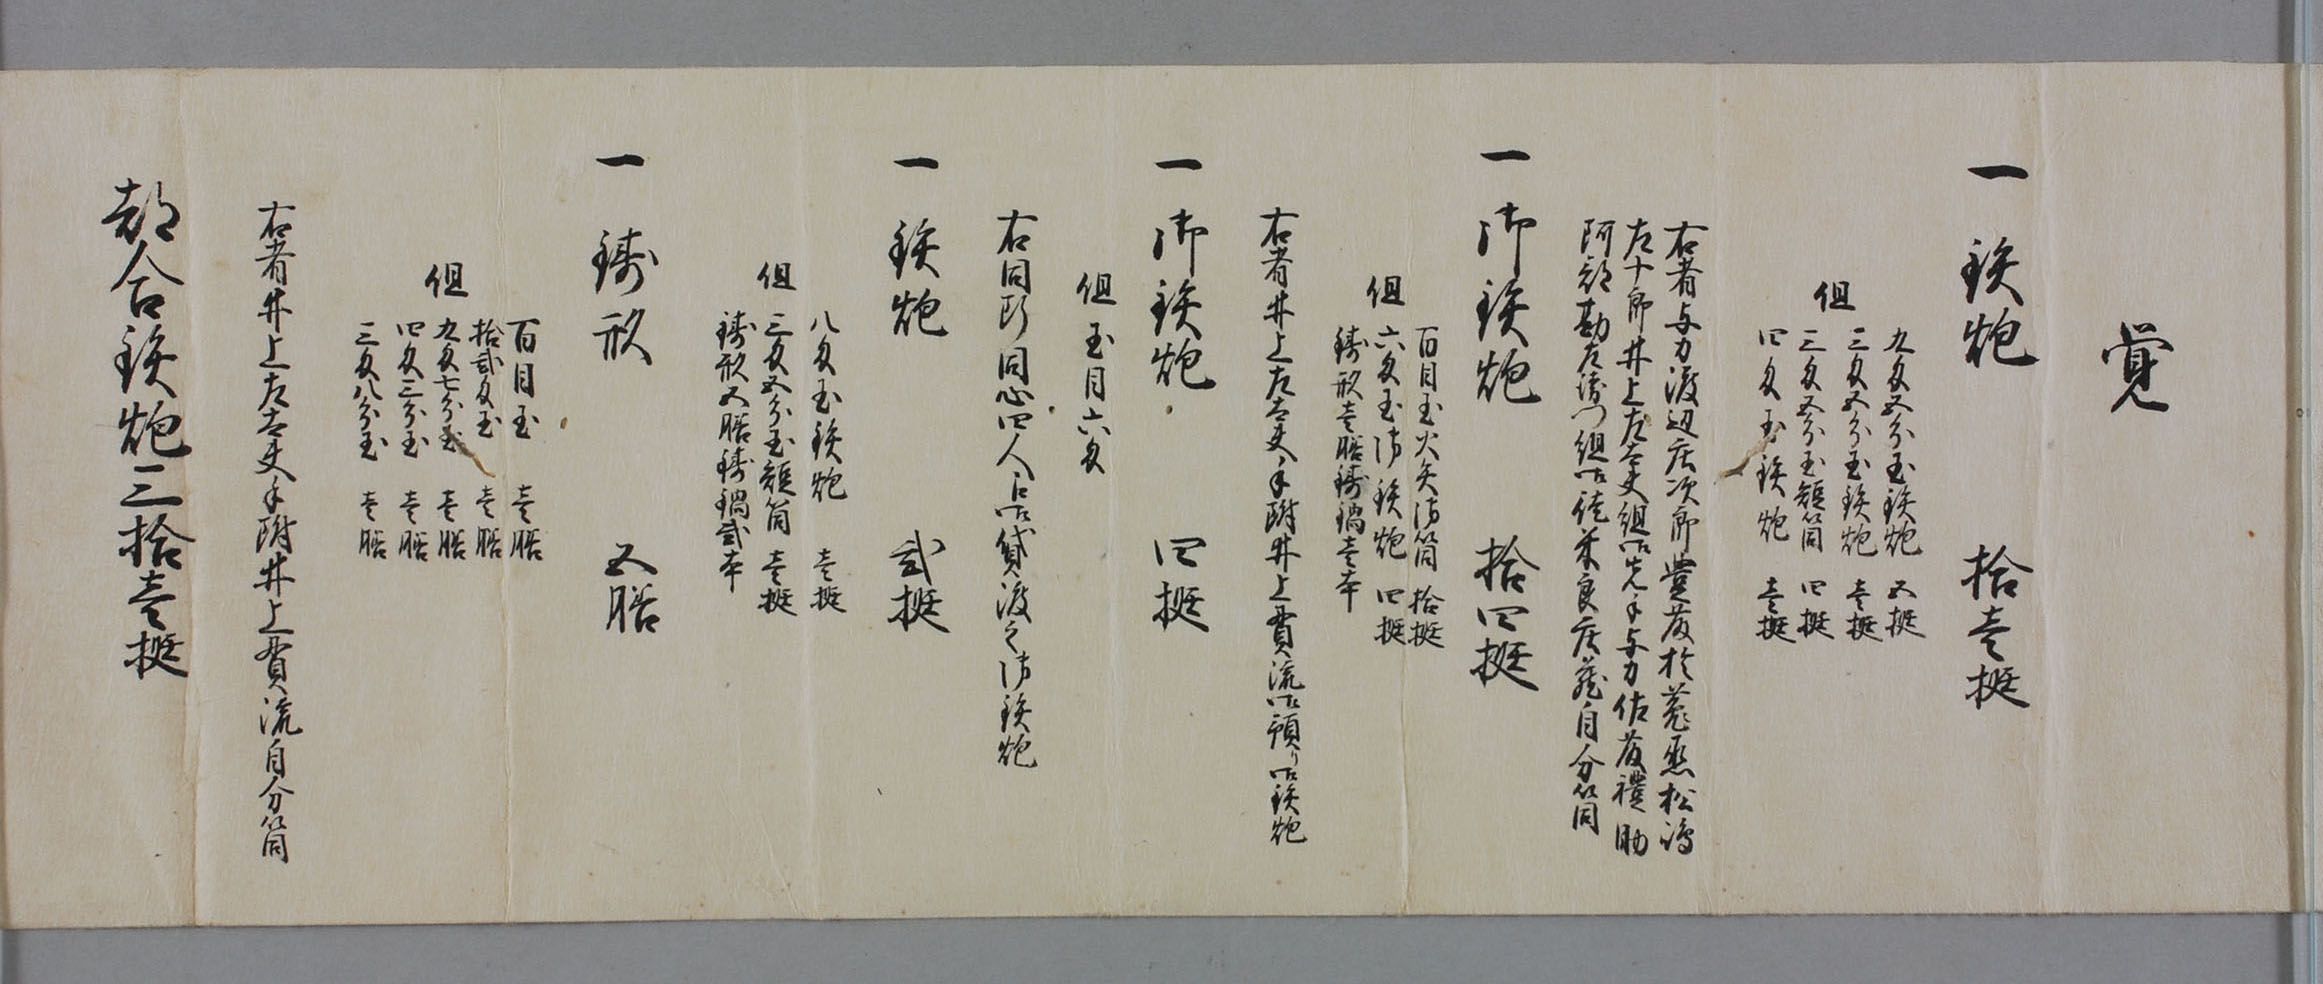 覚
一 鉄炮 拾壱挺
九匁五分玉鉄炮 五挺
三匁五分玉鉄炮 壱挺
但
三匁五分玉短筒 四挺
四匁玉鉄炮 壱挺
右者与力渡辺庄次郎
左十郎井上左太夫組御先手与力佐藤禮助
阿部勘左衛門組御徒米良庄蔵自分筒
一 御鉄炮 拾四挺
百目玉火矢御筒 拾挺
但 六匁玉御鉄炮 四挺
鋳形壱膳鋳鍋壱本
右者井上左太夫手附井上貫流御預り御鉄炮
一 御鉄炮 四挺
但 玉目六匁
右同断同心四人江御貸渡之御鉄炮
一 鉄炮 弐挺
八匁玉鉄炮 壱挺
但 三匁五分玉短筒 壱挺
鋳形五膳鋳鍋弐本
一 鋳形 五膳
百目玉 壱膳
拾弐匁玉 壱膳
但 九匁七分玉 壱膳
四匁三分玉 壱膳
三匁八分玉 壱膳
右者井上左太夫手附井上貫流自分筒
都合鉄炮三拾壱挺